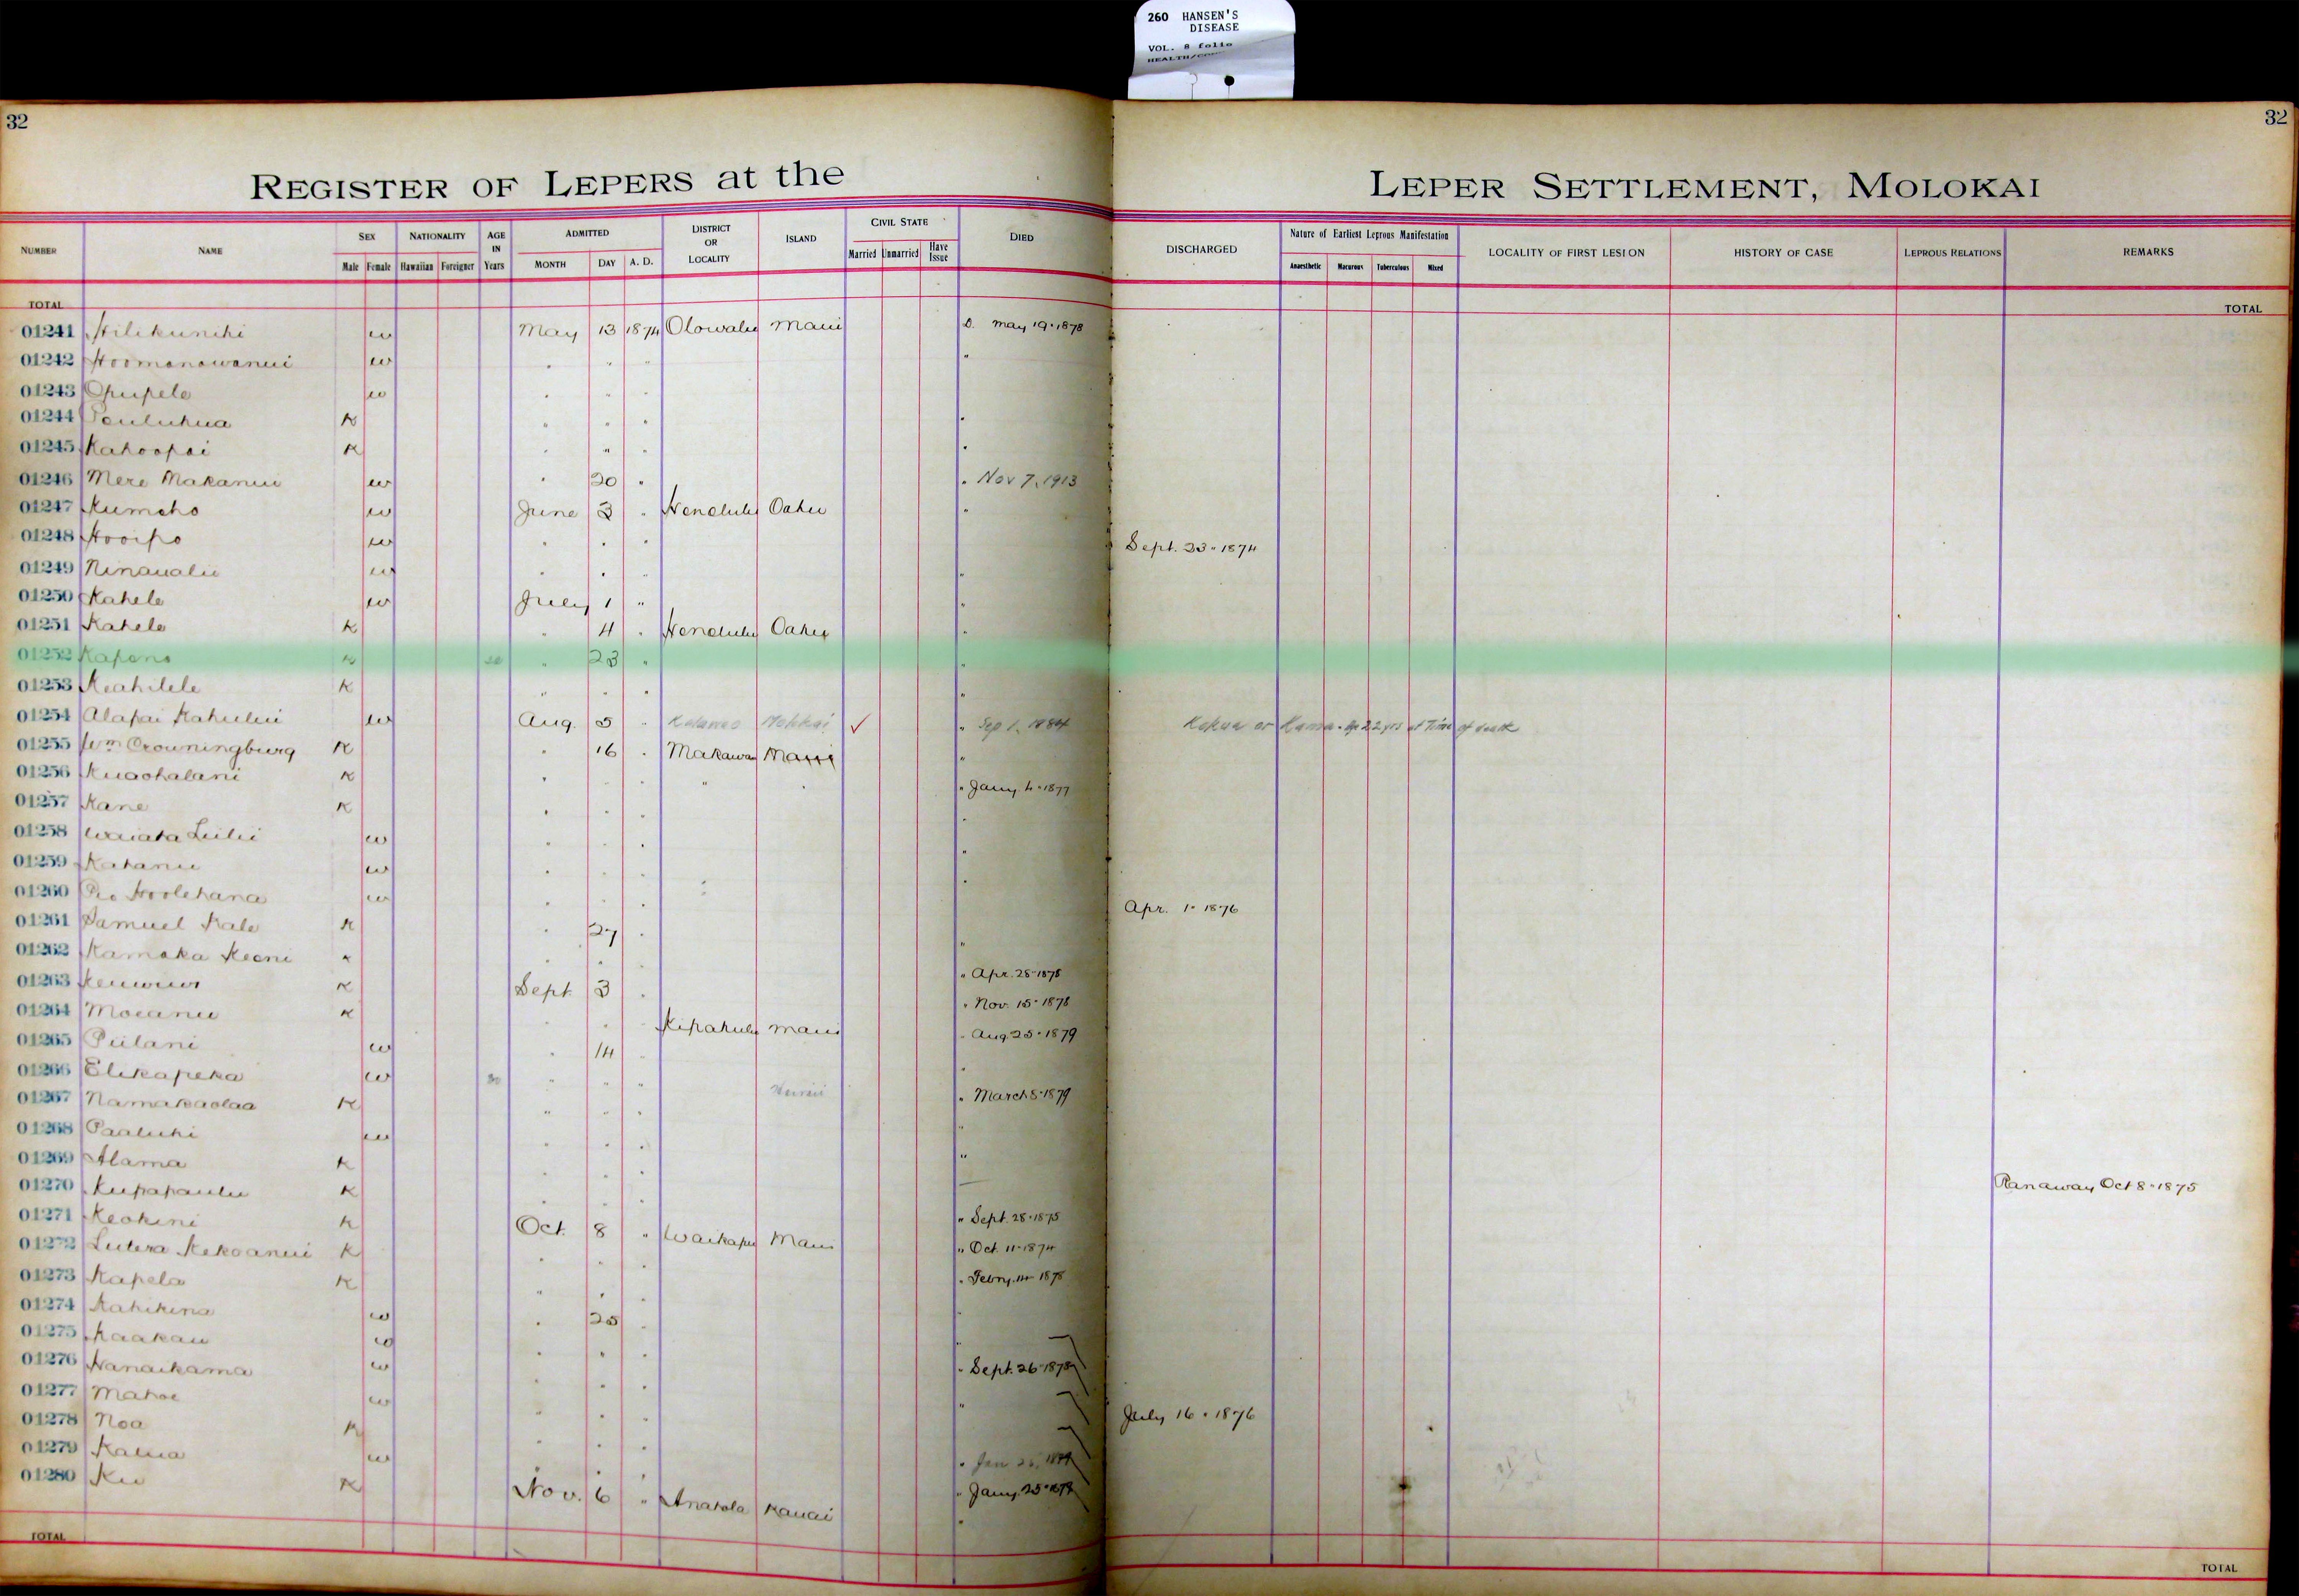 260 HANSEN'S
DISEASE
VOL. 8 folio
32 32
REGISTER OF LEPERS at the LEPER SETTLEMENT, MOLOKAI
NUMBER NAME SEX Male Female NATIONALITY Hawaiian Foreigner AGE IN Years ADMITTED MONTH DAY A. D. DISTRICT OR LOCALITY ISLAND CIVIL STATE Married Unmarried Have Issue DIED DISCHARGED Nature of Earliest Leprous Manifestation Anaesthetic Macurous Tuberculous Mixed LOCALITY OF FIRST LESION HISTORY OF CASE LEPROUS RELATIONS REMARKS
TOTAL TOTAL
01241 Hilikunihi w May 13 1874 Olowalu Maui D. May 19 1878
01242 Hoomanawanui w " " " "
01243 Opupele w " " "
01244 Pauluhua K " " " "
01245 Kahoopai K " " " "
01246 Mere Makanui w " 20 " " Nov 7, 1913
01247 Kumeho w June 3 " Honolulu Oahu "
01248 Hooipo w " " " Sept. 23 1874
01249 Ninaualii w " " " "
01250 Kahele w July 1 " "
01251 Kahele K " 4 " Honolulu Oahu "
01252 Kapena K " 23 " "
01253 Keahilele K " " " "
01254 Alapai Kahului w Aug. 5 " Kalawao Molokai ✓ " Sep 1, 1884 Kokua or Kamaa. Age 22 yrs at Time of death
01255 Wm Crowningburg K " 16 " Makawao Maui "
01256 Kuaohalani K " " " " " " Jany 4 1877
01257 Kane K " " " "
01258 Waiata Liilii w " " " "
01259 Kahanu w " " " "
01260 Pio Hoolehana w " " " Apr. 1 1876
01261 Samuel Kale K " 27 " "
01262 Kamaka Keoni K " " " " Apr. 28 1878
01263 K Sept 3 " " Nov. 15 1878
01264 Moeanu K " " " Kipahulu Maui " Aug 25 1879
01265 Piilani w " 14 " "
01266 Elikapeka w 30 " " " Hawaii " March 8 1879
01267 Namakaolaa K " " " "
01268 Paaluhi w " " " "
01269 Alama K " " "
01270 Kupapaulu K " " " Ranaway Oct 8 1875
01271 Keokini K Oct. 8 " Waikapu Maui " Sept. 28 1875
01272 Lutera Kekoanui K " " " " Oct. 11 1874
01273 Kapela K " " " " Febry. 14 1878
01274 Kahikina w " 25 " "
01275 Kaakau w " " " "
01276 Nanaikama w " " " " Sept. 26 1878
01277 Mahoe w " " " "
01278 Noa K " " " July 16 1876
01279 Kalua w " " " " Jan 26,
01280 Ku K Nov. 6 " Anahola Kauai " Jany. 25
TOTAL TOTAL